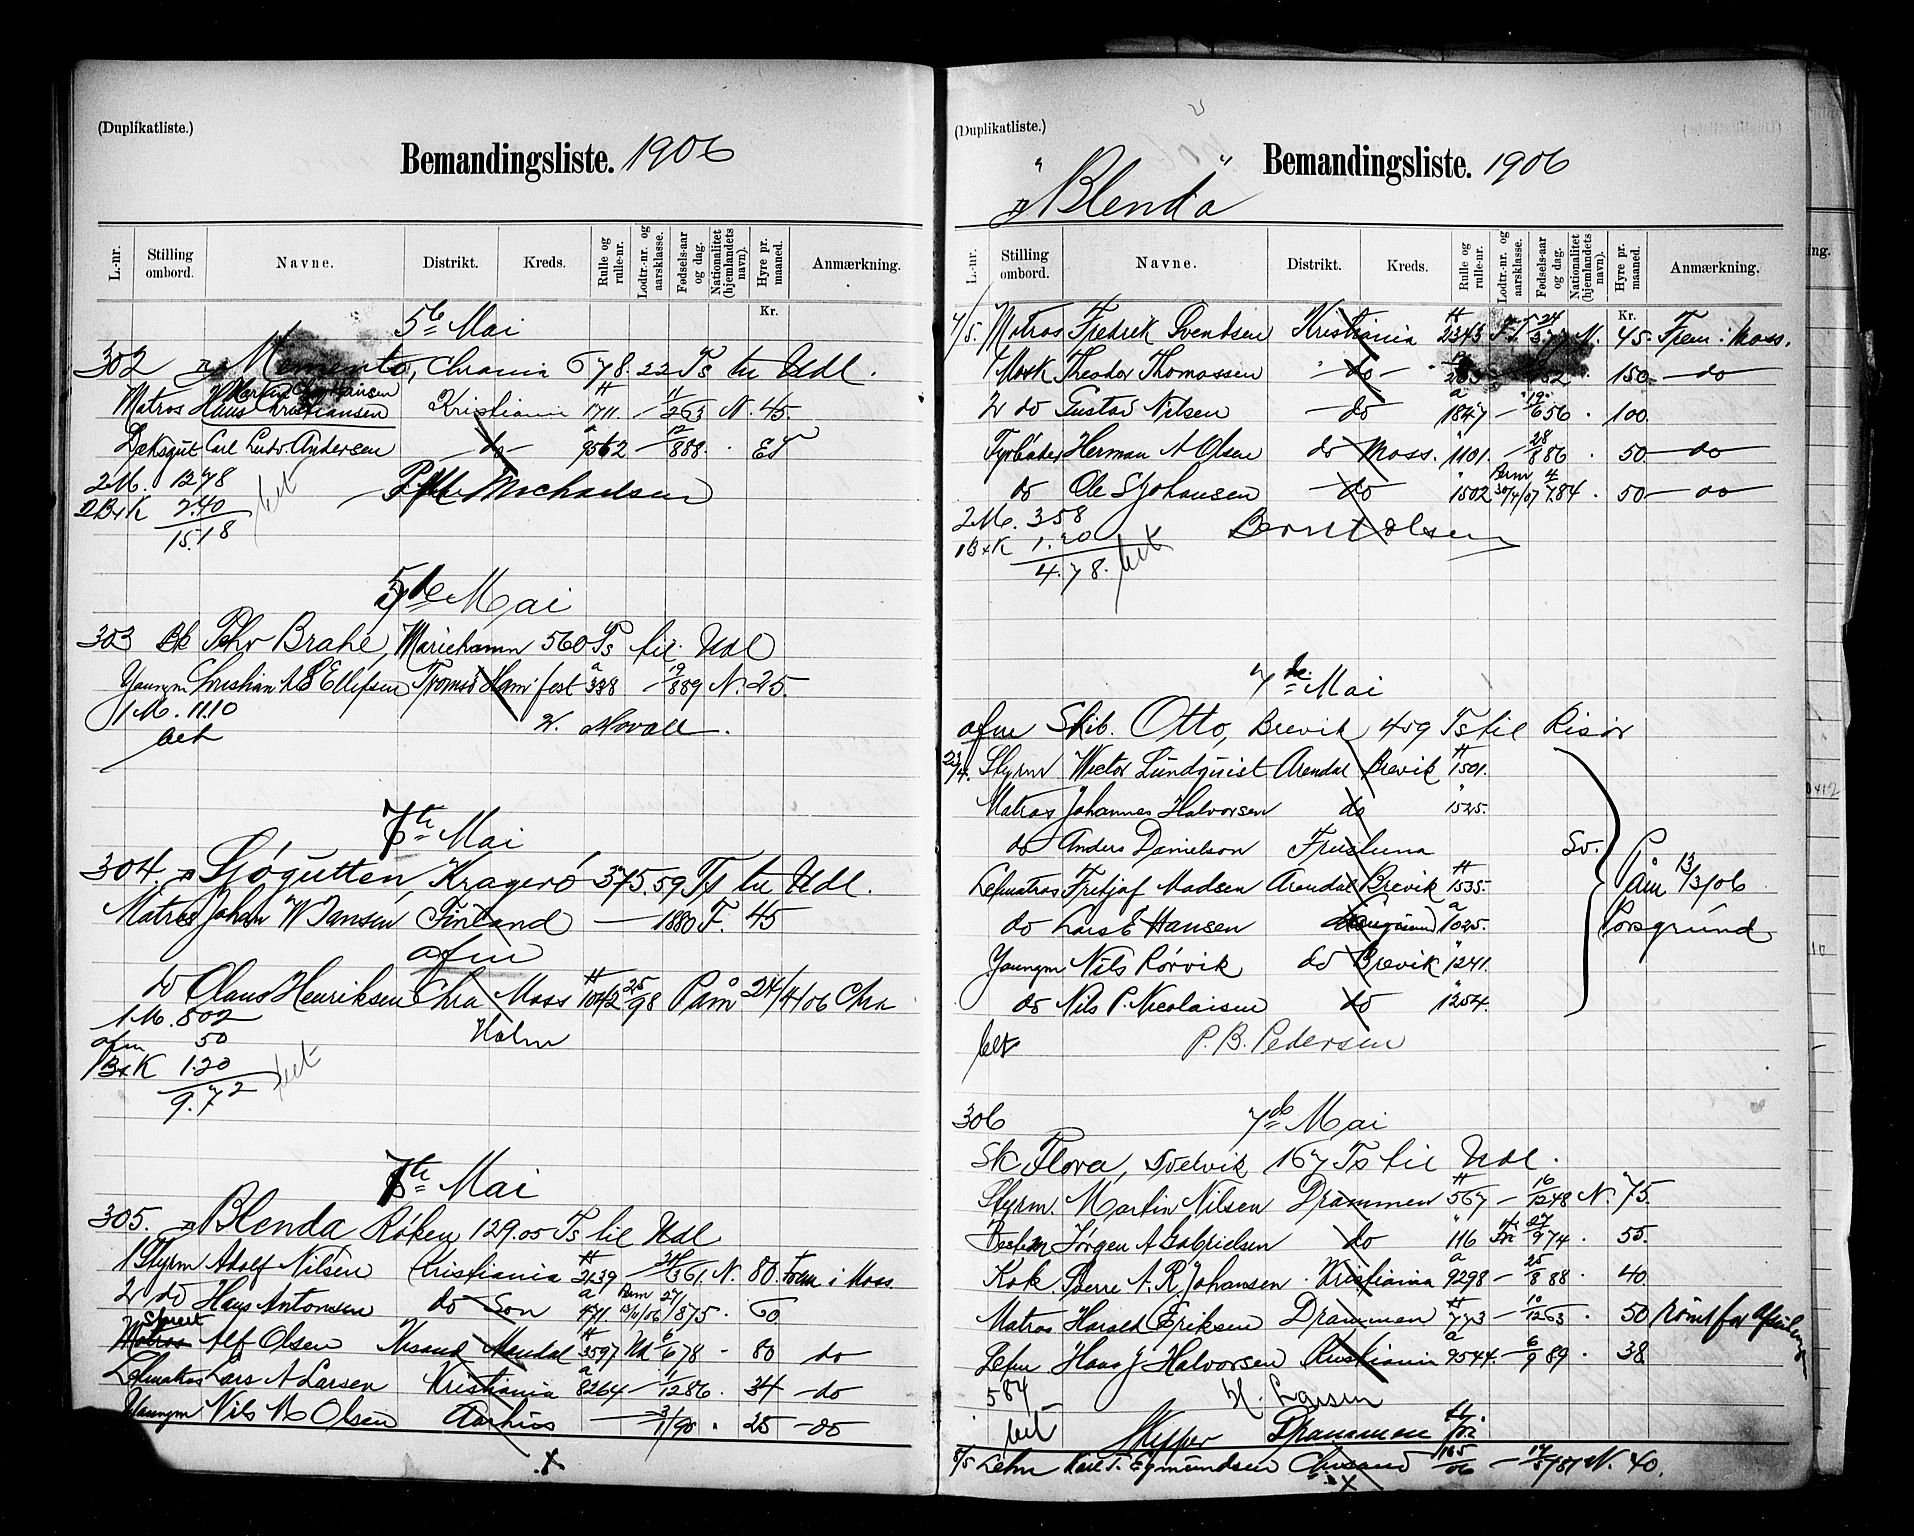 (Duplikatliste.)
Bemandingsliste. 1906
L.-nr. Stilling ombord. Navne. Distrikt. Kreds. Rulle og rulle-nr. Lodtr.-nr. og aarsklasse. Fødsels-aar og dag. Nationalitet (hjemlandets navn). Hyre pr. maaned. Anmærkning.
Kr.
5te Mai
302 Memento, Chrania 678.22 Ts til Udl.
Martin Christiansen
Matros Hans Christiansen Kristiania 1711 N. 45.
Dæksgut Carl Ludv. Andersen do 9562 12/888.
2M. 12.78
2B+K 2.40
15.18 bet
Michaelsen
5te Mai
303 Bk Pehr Brahe, Mariehamn 560 Ts til Udl
Youngm Christian Ellefsen Tromsø Hamfest 338 19/889 N. 25.
1 M. 11.10
bet
Novall.
7de Mai
304 Sjøgutten, Kragerö 375.59 Ts til Udl.
Matros Johan W Jansen Finland 1880 F. 45
afm
do Olaus Henriksen Chra Moss 1042 25/98 Påm 24/4/06 Chra
1 M. 802
Holm
afm 50
1B+K 1.20
9.72 bet
7de Mai
305. Blenda Røken 129.05 Ts til Udl
1 Styrm Adolf Nilsen Kristiania 2139 24/361. N. 80. Frem i Moss.
2 do Hans Antonsen do Son 471. 13/11/06 27/1875 60
Styrert
Matros Alf Olsen Krsand Mandal 3597 6/678 80 do
Letmatros Lars A Larsen Kristiania 8264 1/1286. 34 do
Youngm Nils M Olsen Aarhus 3/1/90 25 do
x
(Duplikatliste.)
Bemandingsliste. 1906
"Blenda"
L.-nr. Stilling ombord. Navne. Distrikt. Kreds. Rulle og rulle-nr. Lodtr.-nr. og aarsklasse. Fødsels-aar og dag. Nationalitet (hjemlandets navn). Hyre pr. maaned. Anmærkning.
Kr.
7/5. Matros Fredrik Svendsen Kristiania 2343 N. 45. Frem i Moss.
1 Mask Theodor Thomassen do 150 do
2 do Gustav Nilsen do 1847 19/656 100.
Fyrbøder Herman A Olsen do Moss. 1101. 28/886 50 do
do Ole S Johansen do 1502 30/4/07 4/784 50 do
2M. 3.58
1B+K 1.20
4.78. bet
Bernt Olsen
7de Mai
afm Skib. Otto, Brevik 459 Ts til Risør
23/4. Styrm Victor Lundquist Arendal Brevik 1501.
Matros Johannes Halvorsen do 1525.
do Anders Danielson Sv.
Letmatros Fritjof Madsen Arendal Brevik 1535.
do Lars E Hansen Langesund 1025.
Youngm Nils Rørvik do Brevik 1241.
do Nils P. Nicolaisen do 1254.
Påm 13/3/06
Porsgrund
bet P. B. Pedersen
306 7de Mai
Sk Flora, Svelvik 167 Ts til Udl.
Styrm. Martin Nilsen Drammen 567 16/1248 N. 75.
Bestm Jørgen A Gabrielsen do 116 27/974 55.
Kok Sverre A. R. Johansen Kristiania 9298 25/888 40
Matros Harald Eriksen Drammen 773 10/1263 50 Rømt før Afseiling
Letm. Hans J Halvorsen Kristiania 9544 6/989 38
584
H. Larsen
bet Skipper Drammen
8/5 Letm Karl T. Egmundsen Chrsand 165/06 N. 40.
x